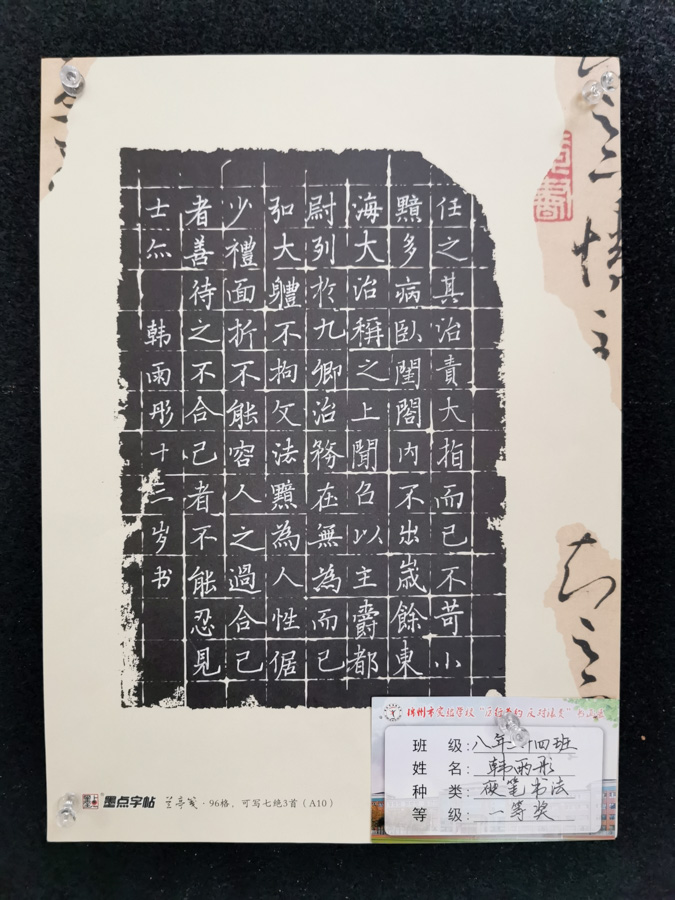 任之其治責大指而已不苛小
黯多病臥閨閤內不出歳餘東
海大治稱之上聞召以主爵都
尉列於九卿治務在無為而已
弘大體不拘文法黯為人性倨
少禮面折不能容人之過合己
者善待之不合己者不能忍見
士亦
韩雨彤十三岁书
墨点字帖 兰亭笺·96格，可写七绝3首（A10）
班 级：八年二十四班
姓 名：韩雨彤
种 类：硬笔书法
等 级：一等奖